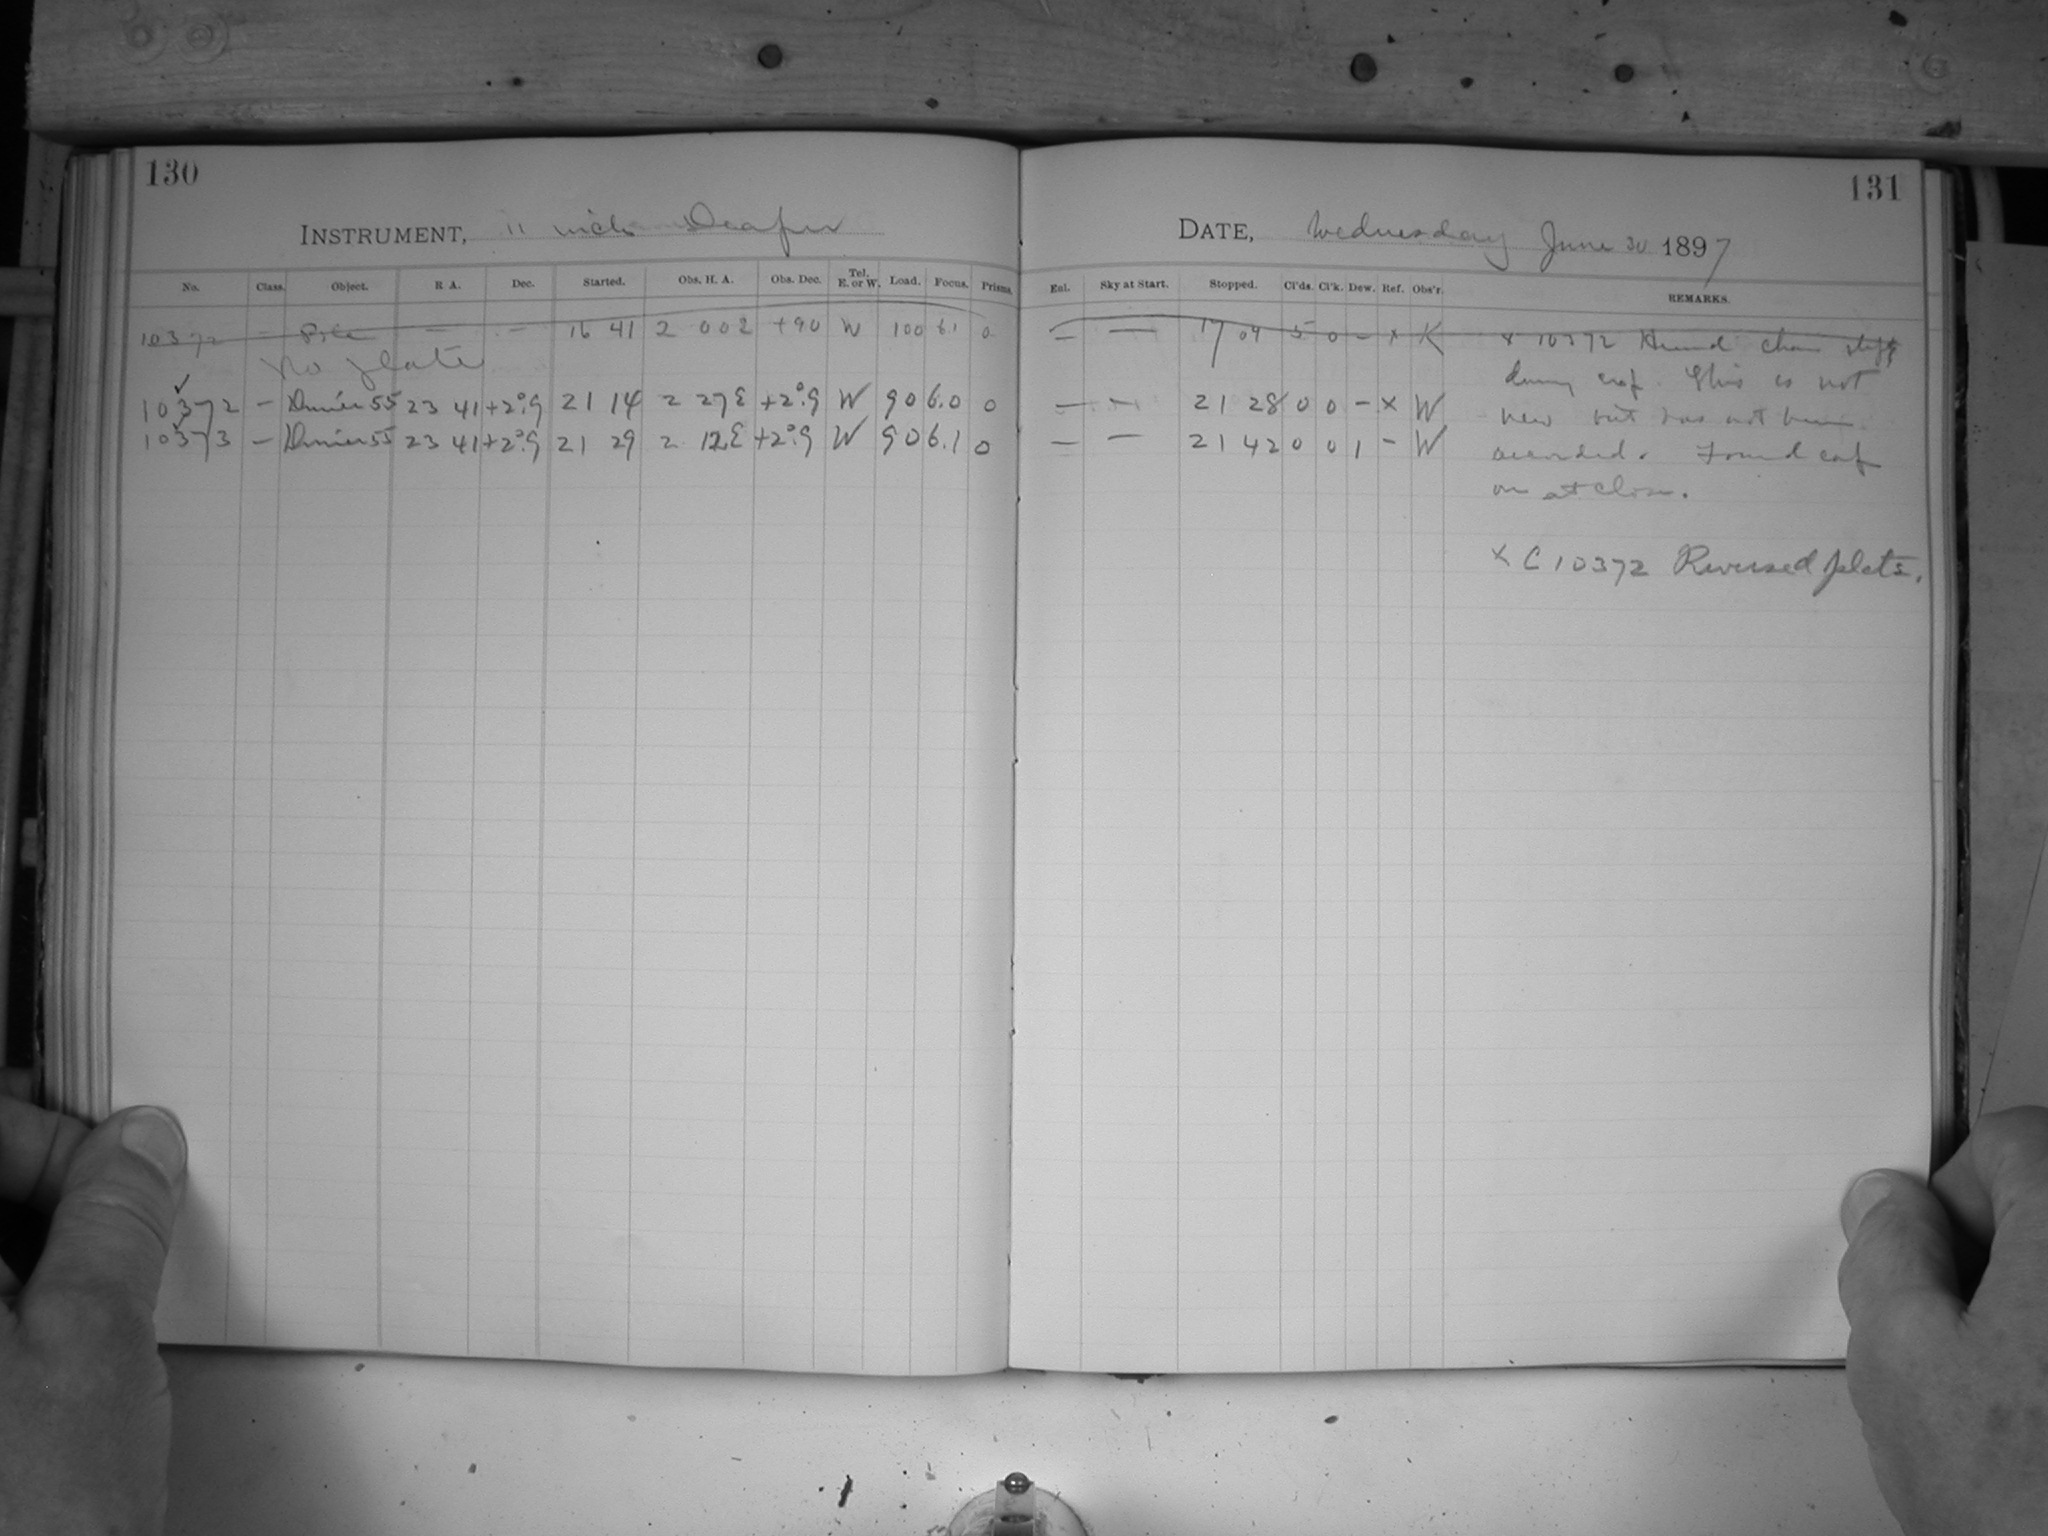 130
INSTRUMENT, 11 inch Draper
No. Class. Object. R A. Dec. Started. Obs. H. A. Obs. Dec. Tel. E. or W. Load. Focus. Prisms.
10372 – Pole – – 16 41 2 00 2 +90 W 100 6.1 0
No plate
10372 – Dunér 55 23 41 +2°.9 21 14 2 27 E +2°.9 W 90 6.0 0
10373 – Dunér 55 23 41 +2°.9 21 29 2 12 E +2°.9 W 90 6.1 0
131
DATE, Wednesday June 30 1897
Enl. Sky at Start. Stopped. Cl'ds. Cl'k. Dew. Ref. Obs'r. REMARKS.
– – 17 04 5 0 – x K x 10372 Heund
during exp. This is not
– – 21 28 0 0 – x W new but has not been
– – 21 42 0 0 1 – W recorded. Found cap
on at close.
x C 10372 Reversed plate.